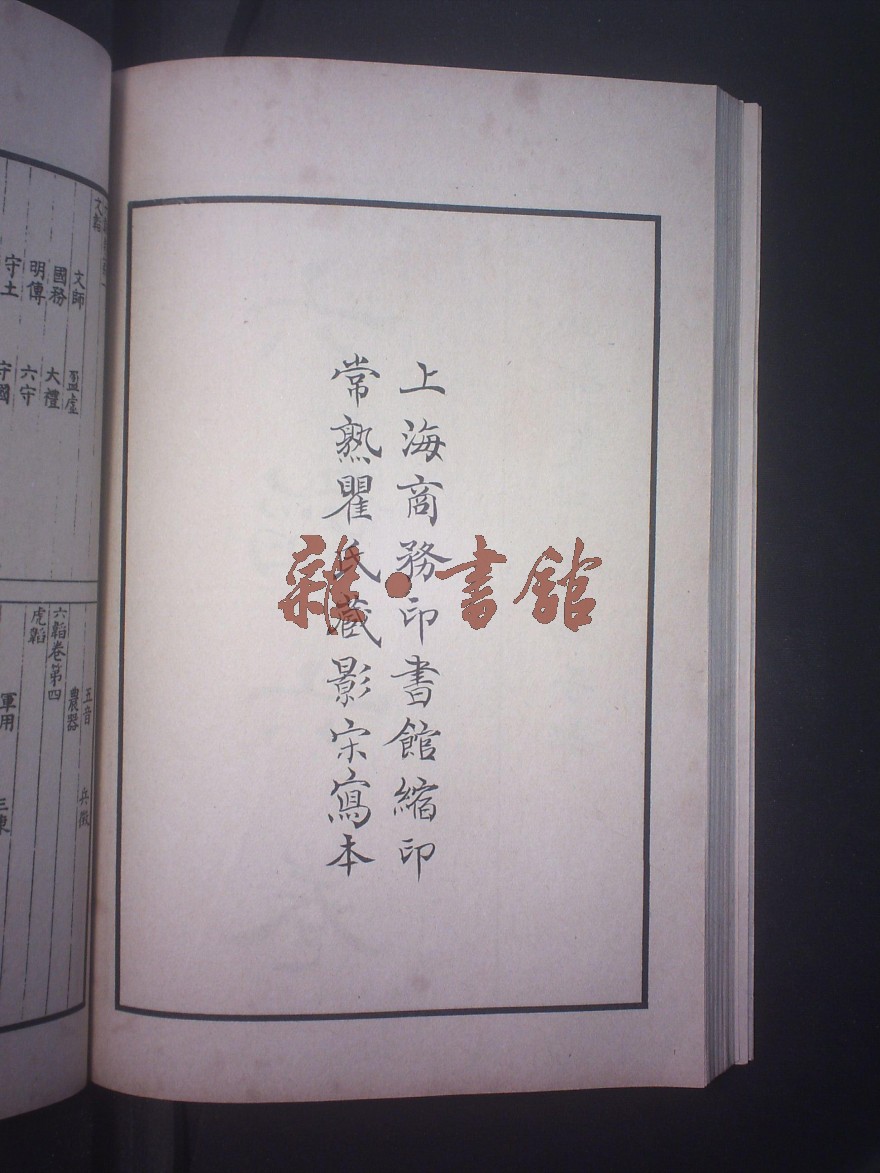 上海商務印書館縮印
常熟瞿氏藏影宋寫本
雜·書館
文師
盈虛
國務
大禮
明傳
六守
守土
守國
五音
兵徵
農器
六韜卷第四
虎韜
軍用